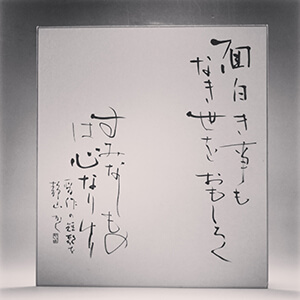 面白き事も
なき世をおもしろく
すみなしもの
は心なりけり
晋作の短歌を